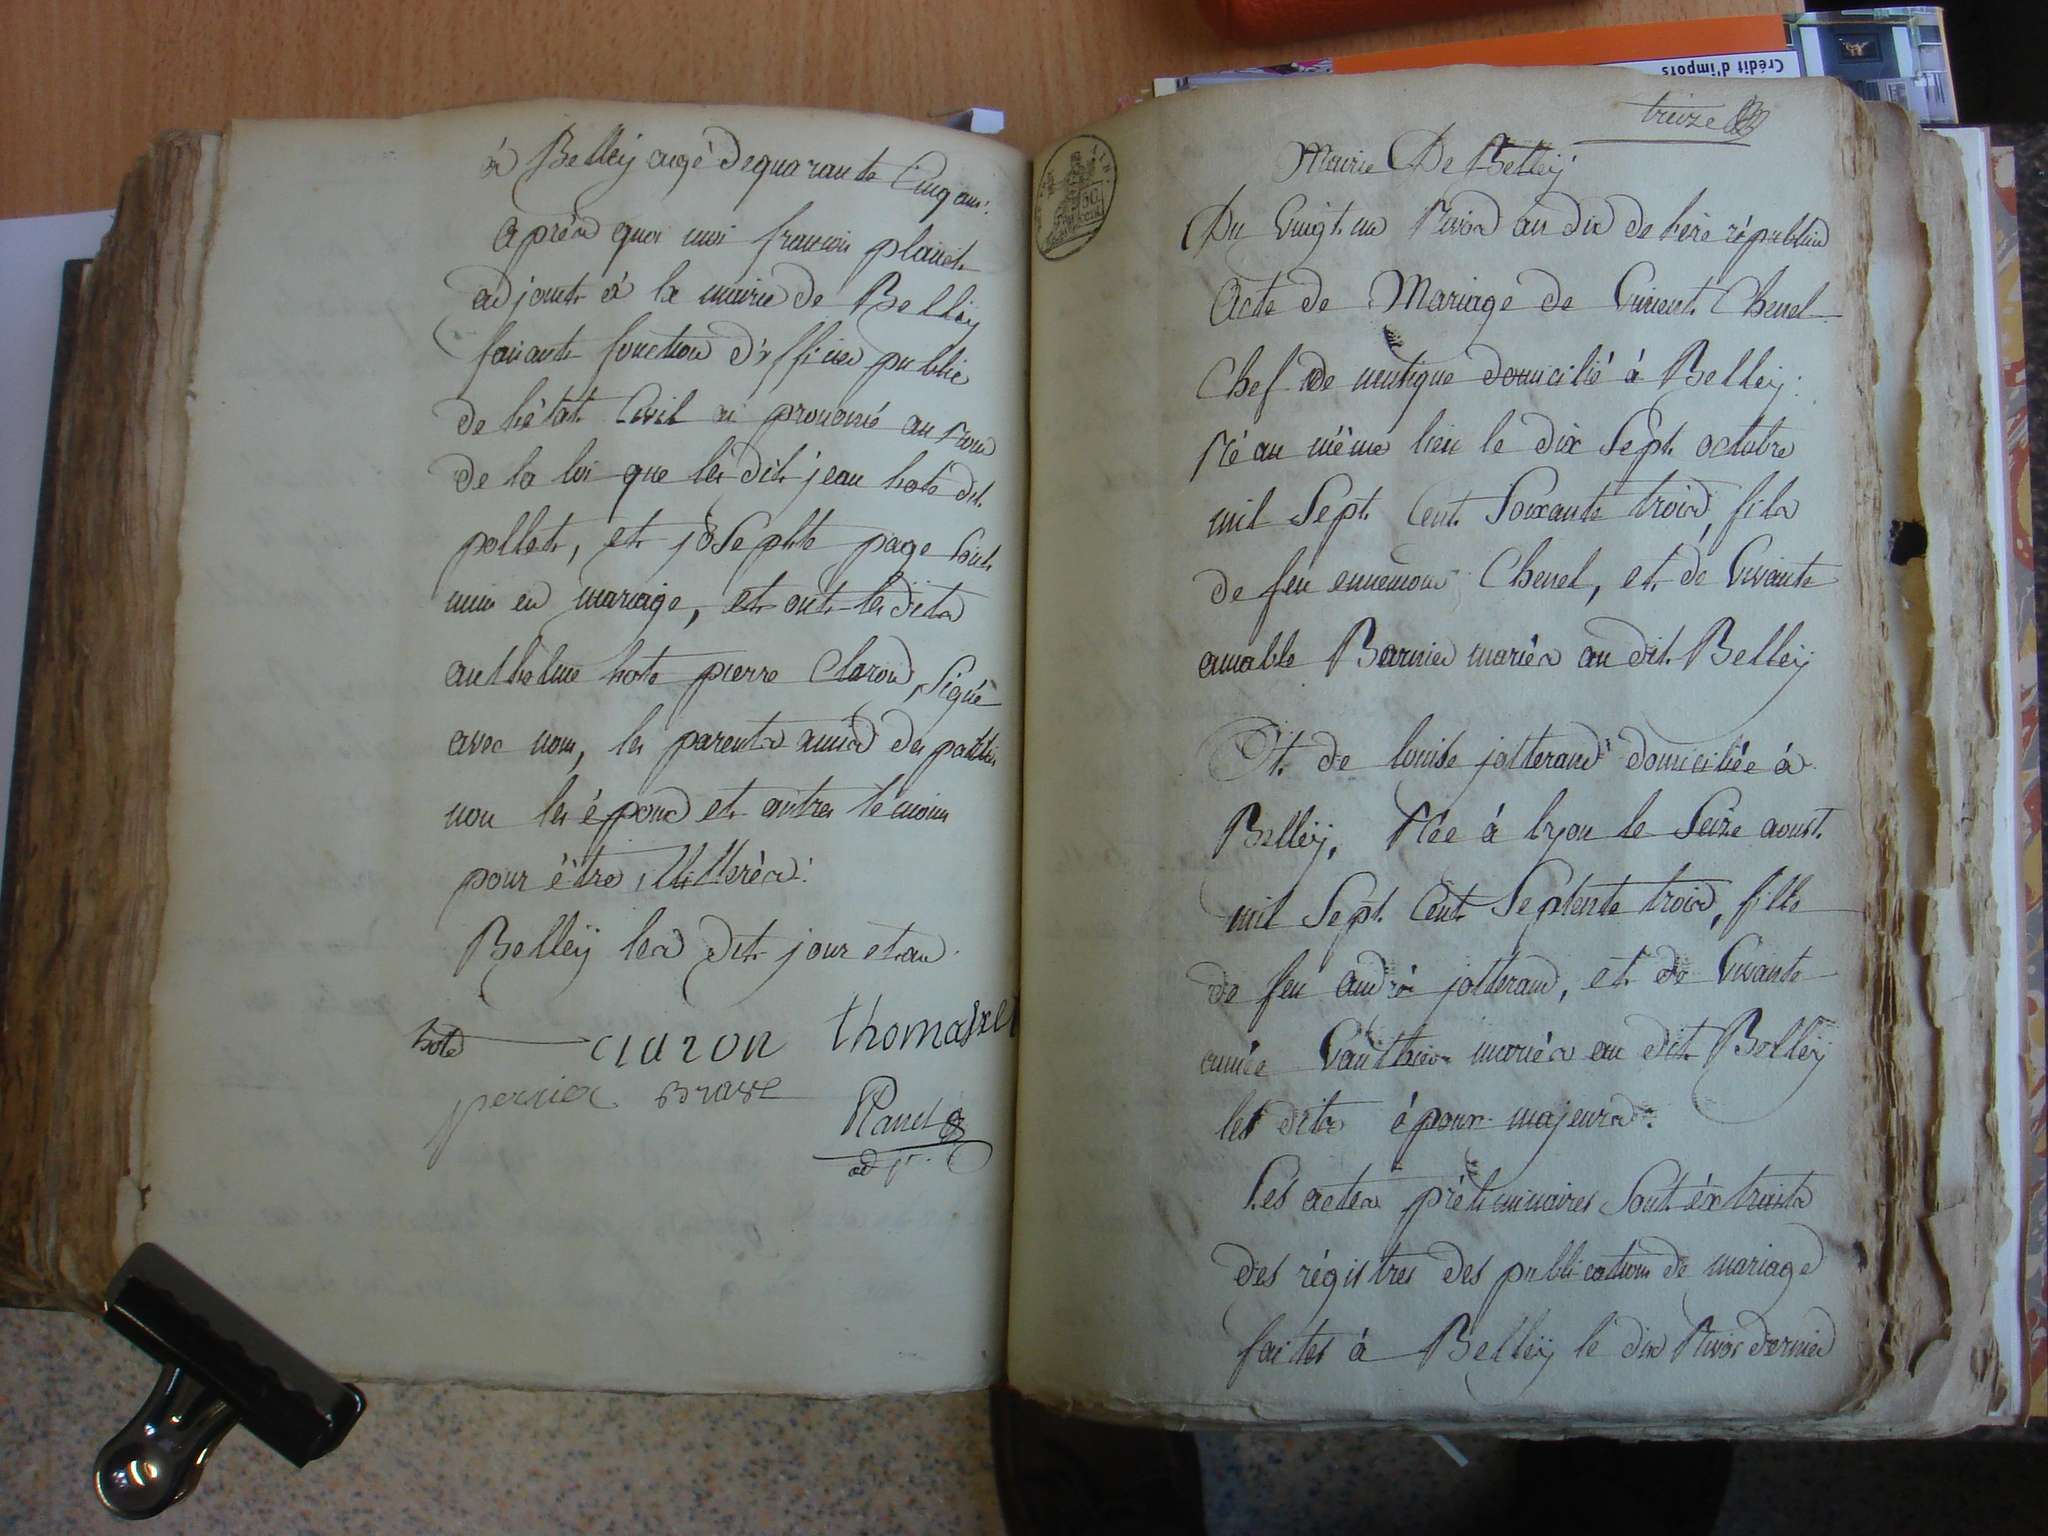 à Belleÿ agé de quarante Cinq ans.
après quoi moi francois planet
adjoint à la mairie de Belleÿ
faisant fonction d'officier public
de l'état Civil ai prononcé au nom
de la loi que les dit jean hote dit
pollet, et joSephte page Sont
unis en mariage, et ont les dits
anthelme hote pierre Claron, Signé
avec nous, les parents amis des parties
non les époux et autres témoins
pour être illitérés.
Belleÿ les dit jour et an.
hote claron thomasset
pernier Brave
Planet
adjt.
treize
Mairie De Belleÿ
Du Vingt un Nivos an dix de l'ère républicn
Acte de Mariage de Vincent Chenel
Chef de musique domicilié à Belleÿ.
Né au même lieu le dix Sept octobre
mil Sept Cent Soixante trois, fils
de feu ennemond Chenel, et de Vivante
amable Barnier mariés au dit Belleÿ
Et de louise jotterand domiciliée à
Belleÿ, Née à lyon le Seize aoust
mil Sept Cent Septente trois, fille
de feu andré jotterand, et de Vivante
aimée Vauthier mariés au dit Belleÿ
les dits époux majeurs.
Les actes préliminaires Sont éxtraits
des régistres des publications de mariage
faites à Belleÿ le dix Nivos dernier
50
Crédit d'impôts